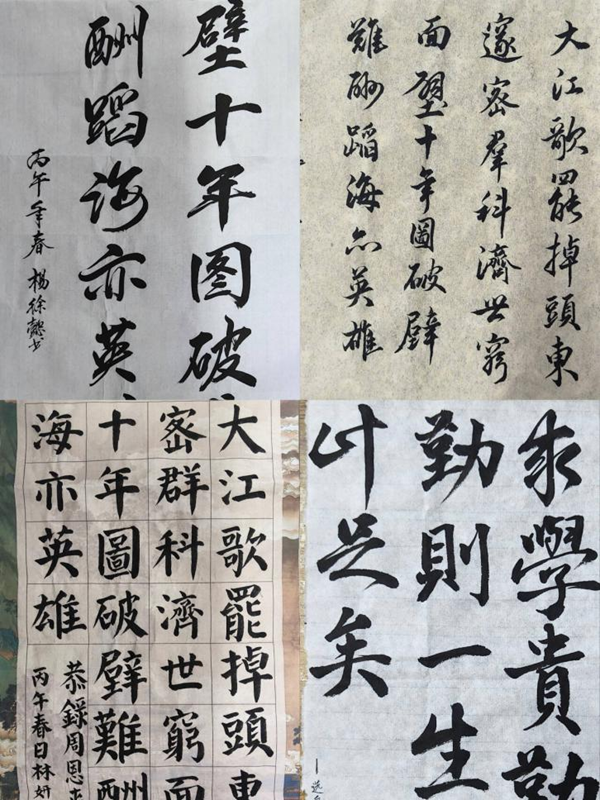 壁十年图破
酬蹈海亦英
丙午年春 楊徐
大江歌罷掉頭東
邃密羣科濟世窮
面壁十年圖破壁
難酬蹈海亦英雄
大江歌罷掉頭東
密群科濟世窮面
十年圖破壁難酬
海亦英雄
恭錄周恩來
丙午春日林妍
求學貴勤
勤則一生
计足矣